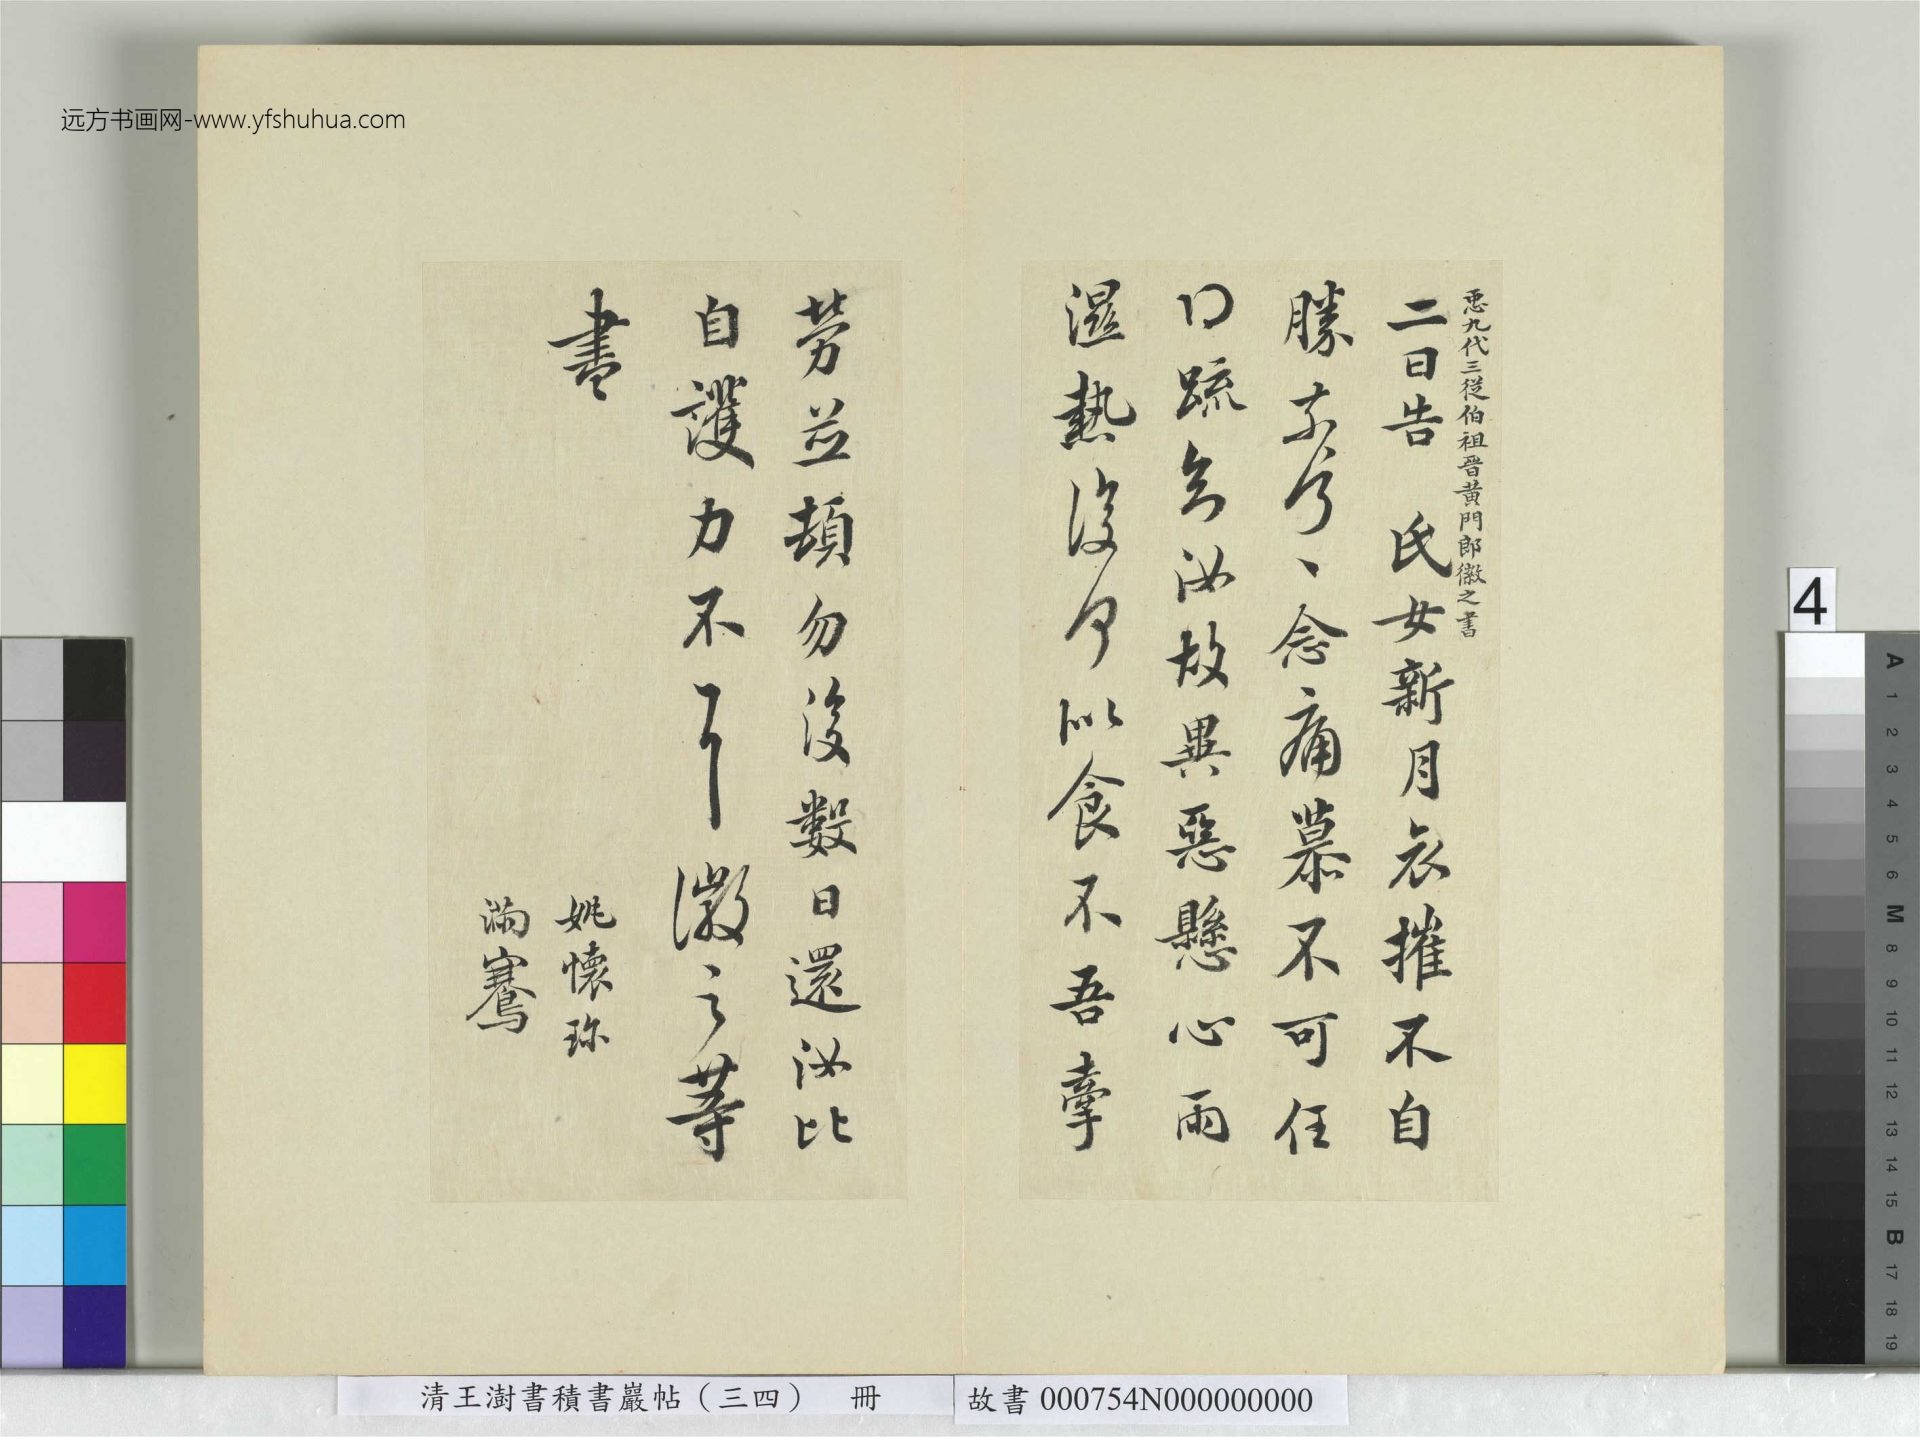 𢘑九代三從伯祖晉黃門郎徽之書
二日告 氏女新月哀摧不自
勝奈何〻念痛慕不可任
得疏知汝故異惡懸心雨
濕熱復何似食不吾牽
勞並頓勿復數日還汝比
自護力不具徽之等
書
姚懷珍
滿騫
远方书画网-www.yfshuhua.com
清王澍書積書巖帖（三四） 冊
故書 000754N000000000
4
A
1
2
3
4
5
6
M
8
9
10
11
12
13
14
15
B
17
18
19